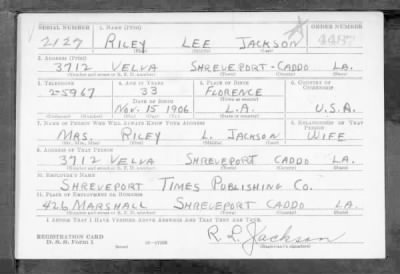 SERIAL NUMBER 1. NAME (Print) ORDER NUMBER
2127 RILEY LEE JACKSON 4487
(First) (Middle) (Last)
2. ADDRESS (Print)
3712 VELVA SHREVEPORT-CADDO LA.
(Number and street or R. F. D. number) (Town) (County) (State)
3. TELEPHONE 4. AGE IN YEARS 5. PLACE OF BIRTH 6. COUNTRY OF CITIZENSHIP
2-5967 33 FLORENCE
DATE OF BIRTH (Town or county)
NOV. 15 1906 L.A. U.S.A.
(Mo.) (Day) (Yr.) (State or country)
7. NAME OF PERSON WHO WILL ALWAYS KNOW YOUR ADDRESS 8. RELATIONSHIP OF THAT PERSON
MRS. RILEY L. JACKSON WIFE
(Mr., Mrs., Miss) (First) (Middle) (Last)
9. ADDRESS OF THAT PERSON
3712 VELVA SHREVEPORT CADDO LA.
(Number and street or R. F. D. number) (Town) (County) (State)
10. EMPLOYER'S NAME
SHREVEPORT TIMES PUBLISHING CO.
11. PLACE OF EMPLOYMENT OR BUSINESS
426 MARSHALL SHREVEPORT CADDO LA.
(Number and street or R. F. D. number) (Town) (County) (State)
I AFFIRM THAT I HAVE VERIFIED ABOVE ANSWERS AND THAT THEY ARE TRUE.
REGISTRATION CARD
D. S. S. Form 1
R. L. Jackson
(Registrant's signature)